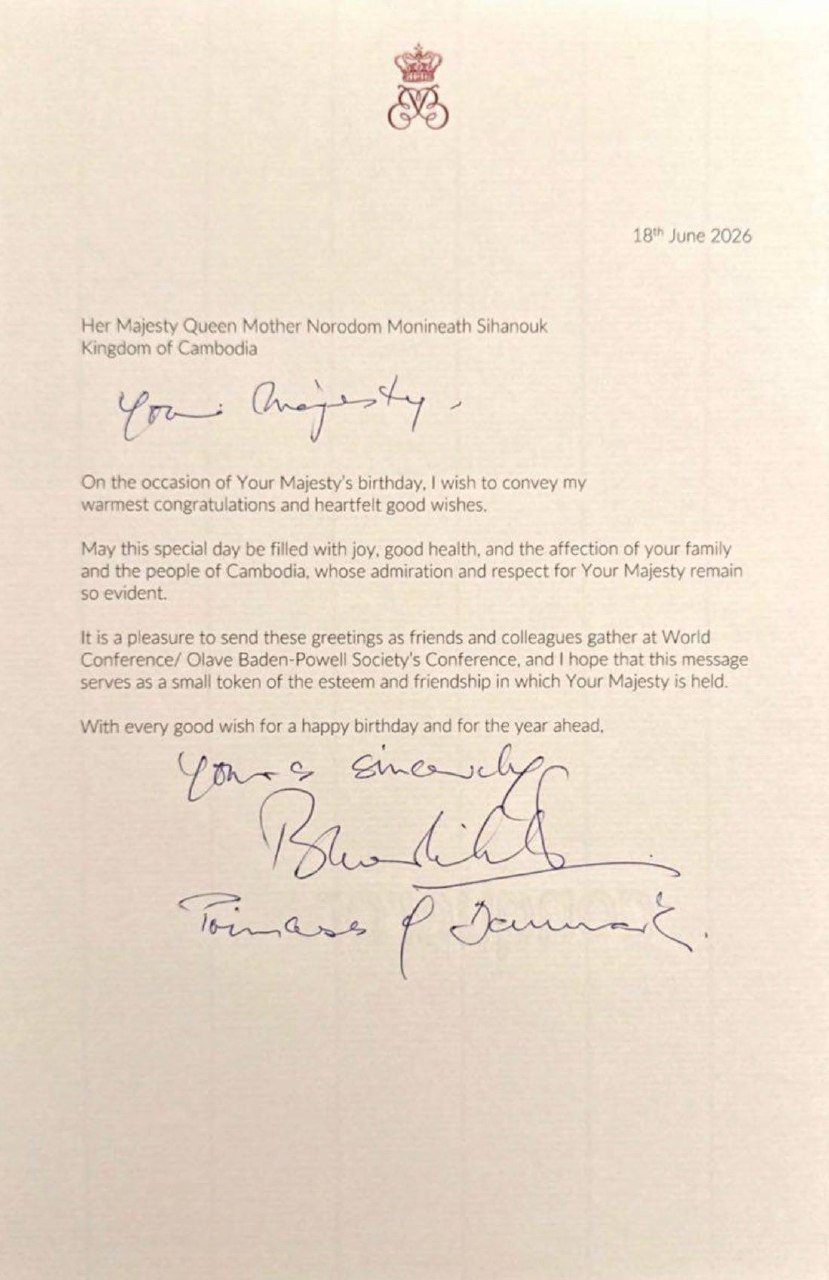 18th June 2026
Her Majesty Queen Mother Norodom Monineath Sihanouk
Kingdom of Cambodia
Your Majesty,
On the occasion of Your Majesty's birthday, I wish to convey my
warmest congratulations and heartfelt good wishes.
May this special day be filled with joy, good health, and the affection of your family
and the people of Cambodia, whose admiration and respect for Your Majesty remain
so evident.
It is a pleasure to send these greetings as friends and colleagues gather at World
Conference/ Olave Baden-Powell Society's Conference, and I hope that this message
serves as a small token of the esteem and friendship in which Your Majesty is held.
With every good wish for a happy birthday and for the year ahead,
Yours sincerely
Benedikte
Prinsesse of Danmark.